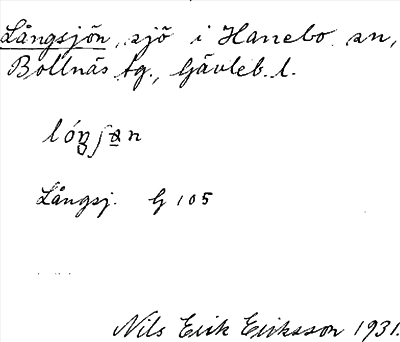 Långsjön, sjö i Hanebo sn,
Bollnäs tg., Gävleb. l.
lóŋʃən
Långsj. G 105
Nils Erik Eriksson 1931.